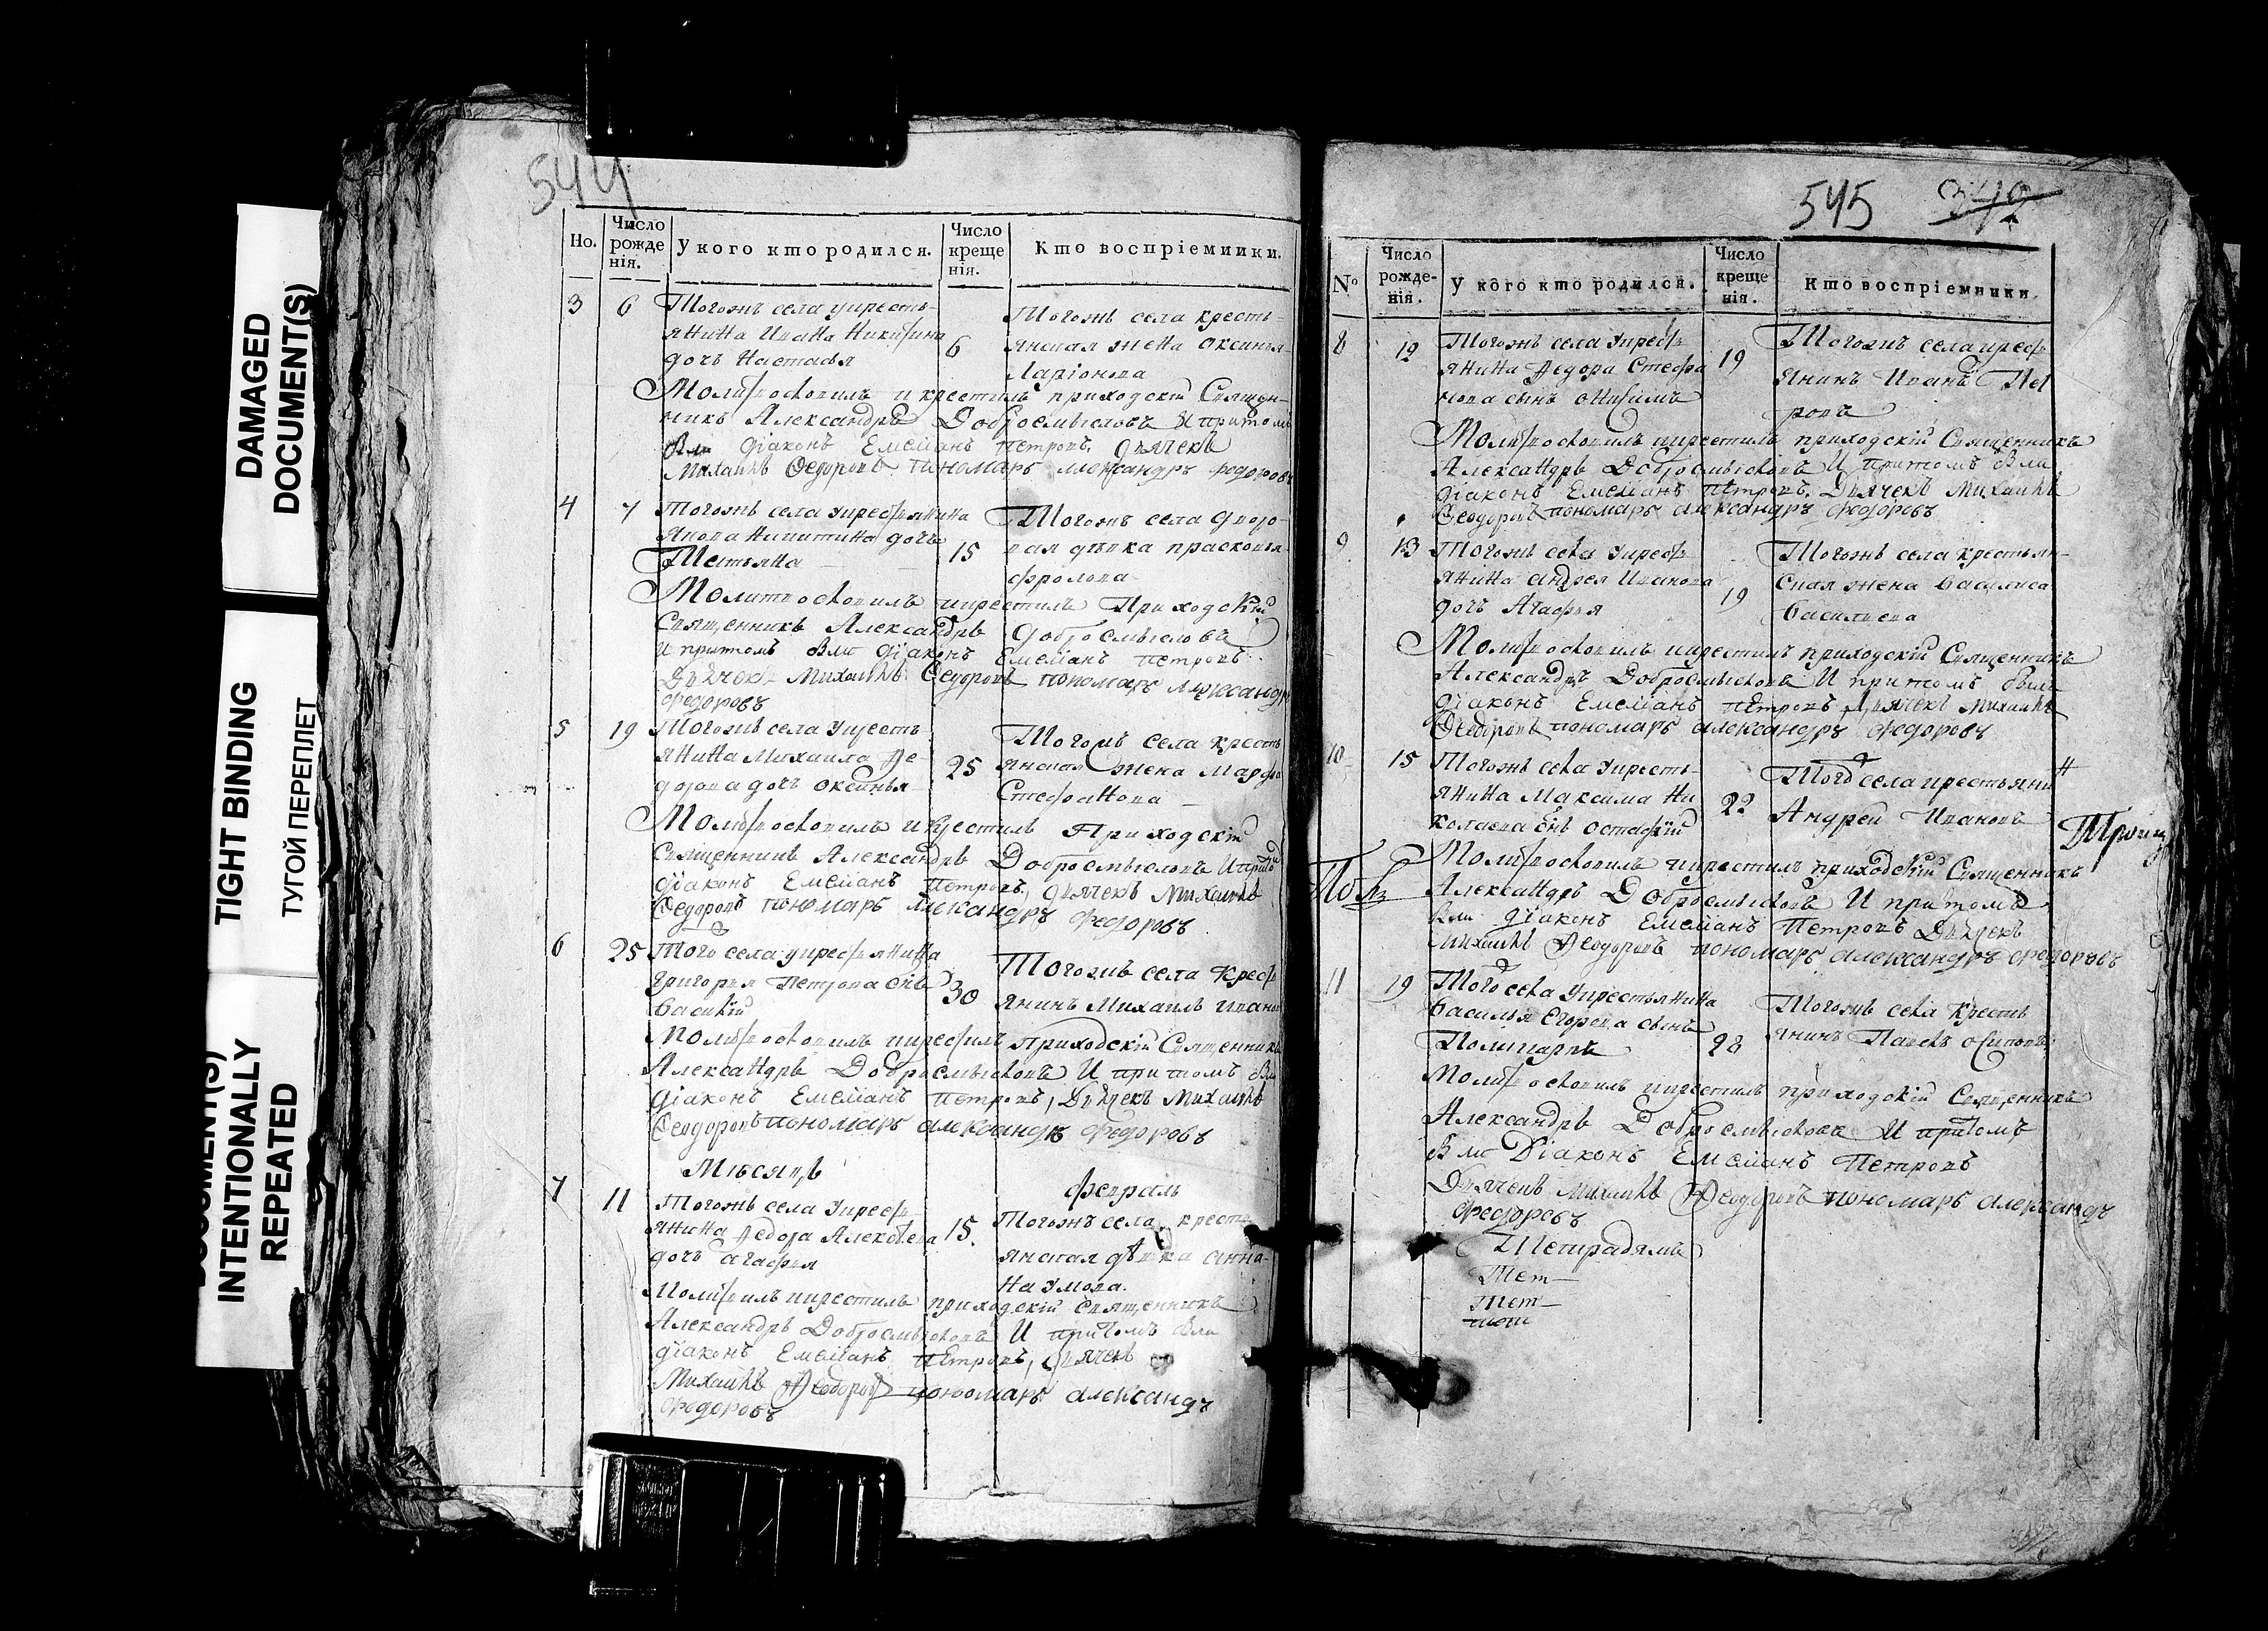 DAMAGED
DOCUMENT(S)
TIGHT BINDING
ТУГОЙ ПЕРЕПЛЕТ
DOCUMENT(S)
INTENTIONALLY
REPEATED
544
Но.
Число рожденія.
У кого кто родился.
Число крещенія.
Кто воспріемники.
3 6 Тогожъ села у кресть-
янина Ивана Никитина
дочь Настасья
6
Тогожъ села кресть-
янская жена Оксинья
Ларіонова
Молитвословилъ и крестилъ приходскій Священ-
никъ Александръ Добросмысловъ И притомъ
были діаконъ Емеліанъ Петровъ, дьячекъ
Михаилъ Феодоровъ пономарь Александръ Федоровъ
4 7 Тогожъ села у крестьянина
Якова Никитина дочь
Тетьяна
15
Тогожъ села дворо-
вая девка Прасковья
Фролова
Молитвословилъ и крестилъ Приходскій
Священникъ Александръ Добросмысловъ
И притомъ были діаконъ Емеліанъ Петровъ
Дьячекъ Михаилъ Феодоровъ пономарь Александръ
Федоровъ
5 19 Тогожъ села у кресть-
янина Михаила Фе-
дорова дочь Оксинья
25
Тогожъ села кресть
янская жена Марфа
Стефанова
Молитвословилъ и крестилъ Приходскій
Священникъ Александръ Добросмысловъ И притомъ
діаконъ Емеліанъ Петровъ, дьячекъ Михаилъ
Феодоровъ пономарь Александръ Федоровъ
6 25 Тогожъ села у крестьянина
Григорья Петрова снъ
Василій
30
Тогожъ села крест
янинъ Михаилъ Ивано
Молитвословилъ и крестилъ Приходскій Священникъ
Александръ Добросмысловъ И притомъ были
діаконъ Емеліанъ Петровъ, Дьячекъ Михаилъ
Феодоровъ пономарь Александръ Федоровъ
Месяцъ
февраль
7 11 Тогожъ села у крест
янина Федора Алексеева
дочь Агафья
15.
Тогожъ села крест
янская девка Анна
Наумова.
Молитвилъ и крестилъ приходскій Священникъ
Александръ Добросмысловъ И притомъ были
діаконъ Емеліанъ Петровъ, дьячекъ
Михаилъ Феодоровъ пономарь Александръ
Федоровъ
545
№
Число рожде-нія.
У кого кто родился.
Число крещенія.
Кто воспріемники.
8 12 Тогожъ села у крест
янина Федора Стефа
нова сынъ Онисимъ
19
Тогожъ села крест
янинъ Иванъ Пет
ровъ
Молитвословилъ и крестилъ приходскій Священникъ
Александръ Добросмысловъ И притомъ были
діаконъ Емеліанъ Петровъ, Дьячекъ Михаилъ
Феодоровъ пономарь Александръ Федоровъ
9 13 Тогожъ села у крест
янина Андрея Иванова
дочь Агафья
19
Тогожъ села крестьян-
ская жена Василиса
Васильева
Молитвословилъ и крестилъ приходскій Священникъ
Александръ Добросмысловъ И притомъ были
діаконъ Емеліанъ Петровъ, Дьячекъ Михаилъ
Феодоровъ пономарь Александръ Федоровъ
10 15 Тогожъ села у кресть-
янина Максима Ни
колаева снъ Остафій
22
Тогожъ села крестьянинъ
Андрей Ивановъ
Молитвословилъ и крестилъ приходскій Священникъ
Александръ Добросмысловъ И притомъ
были діаконъ Емеліанъ Петровъ Дьячекъ
Михаилъ Феодоровъ пономарь Александръ Федоровъ
11 19 Тогожъ села у крестьянина
Василья Егорова сынъ
Поликарпъ
28
Тогожъ села кресть
янинъ Павелъ Осиповъ
Молитвословилъ и крестилъ приходскій Священникъ
Александръ Добросмысловъ И притомъ
были Діаконъ Емеліанъ Петровъ
Дьячекъ Михаилъ Феодоровъ пономарь Александръ
Федоровъ
Тетрадямъ
Тет
Тет